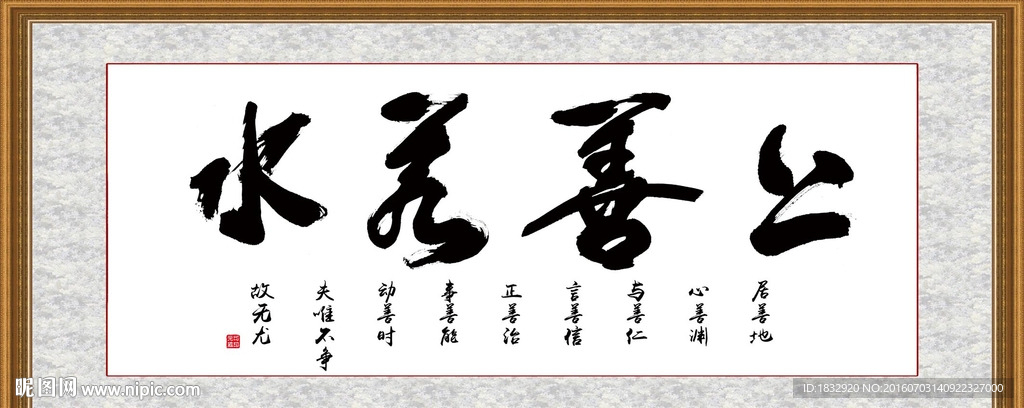 上善若水
居善地
心善渊
与善仁
言善信
正善治
事善能
动善时
夫唯不争
故无尤
昵图网 www.nipic.com
ID:1832920 NO:20160703140922327000